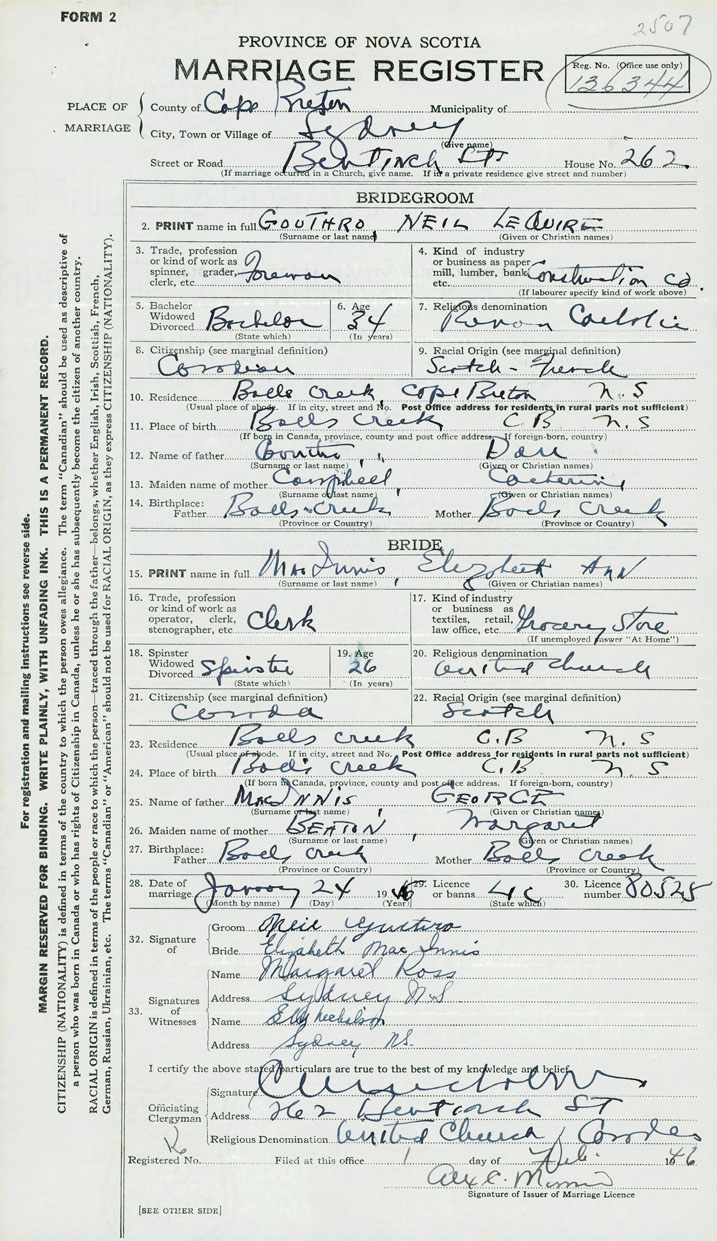 FORM 2
2507
PROVINCE OF NOVA SCOTIA
MARRIAGE REGISTER
Reg. No. (Office use only)
136344
PLACE OF MARRIAGE
County of Cape Breton Municipality of
City, Town or Village of Sydney
(Give name)
Street or Road Bentinch St House No. 262
(If marriage occurred in a Church, give name. If in a private residence give street and number)
BRIDEGROOM
2. PRINT name in full GOUTHRO, NEIL LEQUIRE
(Surname or last name) (Given or Christian names)
3. Trade, profession or kind of work as spinner, grader, clerk, etc. Foreman
4. Kind of industry or business as paper mill, lumber, bank etc. Construction Co.
(If labourer specify kind of work above)
5. Bachelor Widowed Divorced Bachelor
(State which)
6. Age 34
(In years)
7. Religious denomination Roman Catholic
8. Citizenship (see marginal definition)
Canadian
9. Racial Origin (see marginal definition)
Scotch - French
10. Residence Balls Creek, Cape Breton N.S
(Usual place of abode. If in city, street and No. Post Office address for residents in rural parts not sufficient)
11. Place of birth Balls Creek C.B N.S
(If born in Canada, province, county and post office address. If foreign-born, country)
12. Name of father Gouthro, Dan
(Surname or last name) (Given or Christian names)
13. Maiden name of mother Campbell, Catherine
(Surname or last name) (Given or Christian names)
14. Birthplace: Father Balls Creek Mother Balls Creek
(Province or Country) (Province or Country)
BRIDE
15. PRINT name in full MacInnis, Elizabeth Ann
(Surname or last name) (Given or Christian names)
16. Trade, profession or kind of work as operator, clerk, stenographer, etc Clerk
17. Kind of industry or business as textiles, retail, law office, etc. Grocery Store
(If unemployed answer "At Home")
18. Spinster Widowed Divorced Spinster
(State which)
19. Age 26
(In years)
20. Religious denomination
United Church
21. Citizenship (see marginal definition)
Canada
22. Racial Origin (see marginal definition)
Scotch
23. Residence Balls Creek C.B N.S
(Usual place of abode. If in city, street and No. Post Office address for residents in rural parts not sufficient)
24. Place of birth Balls Creek C.B N.S
(If born in Canada, province, county and post office address. If foreign-born, country)
25. Name of father MacINNIS, GEORGE
(Surname or last name) (Given or Christian names)
26. Maiden name of mother BEATON, Margaret
(Surname or last name) (Given or Christian names)
27. Birthplace: Father Balls Creek Mother Balls Creek
(Province or Country) (Province or Country)
28. Date of marriage January 24 1946
(Month by name) (Day) (Year)
29. Licence or banns
(State which)
30. Licence number 80525
32. Signature of
Groom Neil Gouthro
Bride Elizabeth MacInnis
33. Signatures of Witnesses
Name Margaret Ross
Address Sydney N.S
Name Nicholson
Address Sydney NS.
I certify the above stated particulars are true to the best of my knowledge and belief.
Officiating Clergyman
Signature
Address 262 Bentinch St
Religious Denomination United Church / Canada
Registered No. Filed at this office 1 day of Feb. 1946
Alex C.
Signature of Issuer of Marriage Licence
[SEE OTHER SIDE]
For registration and mailing instructions see reverse side.
MARGIN RESERVED FOR BINDING. WRITE PLAINLY, WITH UNFADING INK. THIS IS A PERMANENT RECORD.
CITIZENSHIP (NATIONALITY) is defined in terms of the country to which the person owes allegiance. The term "Canadian" should be used as descriptive of
a person who was born in Canada or who has rights of Citizenship in Canada, unless he or she has subsequently become the citizen of another country.
RACIAL ORIGIN is defined in terms of the people or race to which the person—traced through the father—belongs, whether English, Irish, Scottish, French,
German, Russian, Ukrainian, etc. The terms "Canadian" or "American" should not be used for RACIAL ORIGIN, as they express CITIZENSHIP (NATIONALITY).